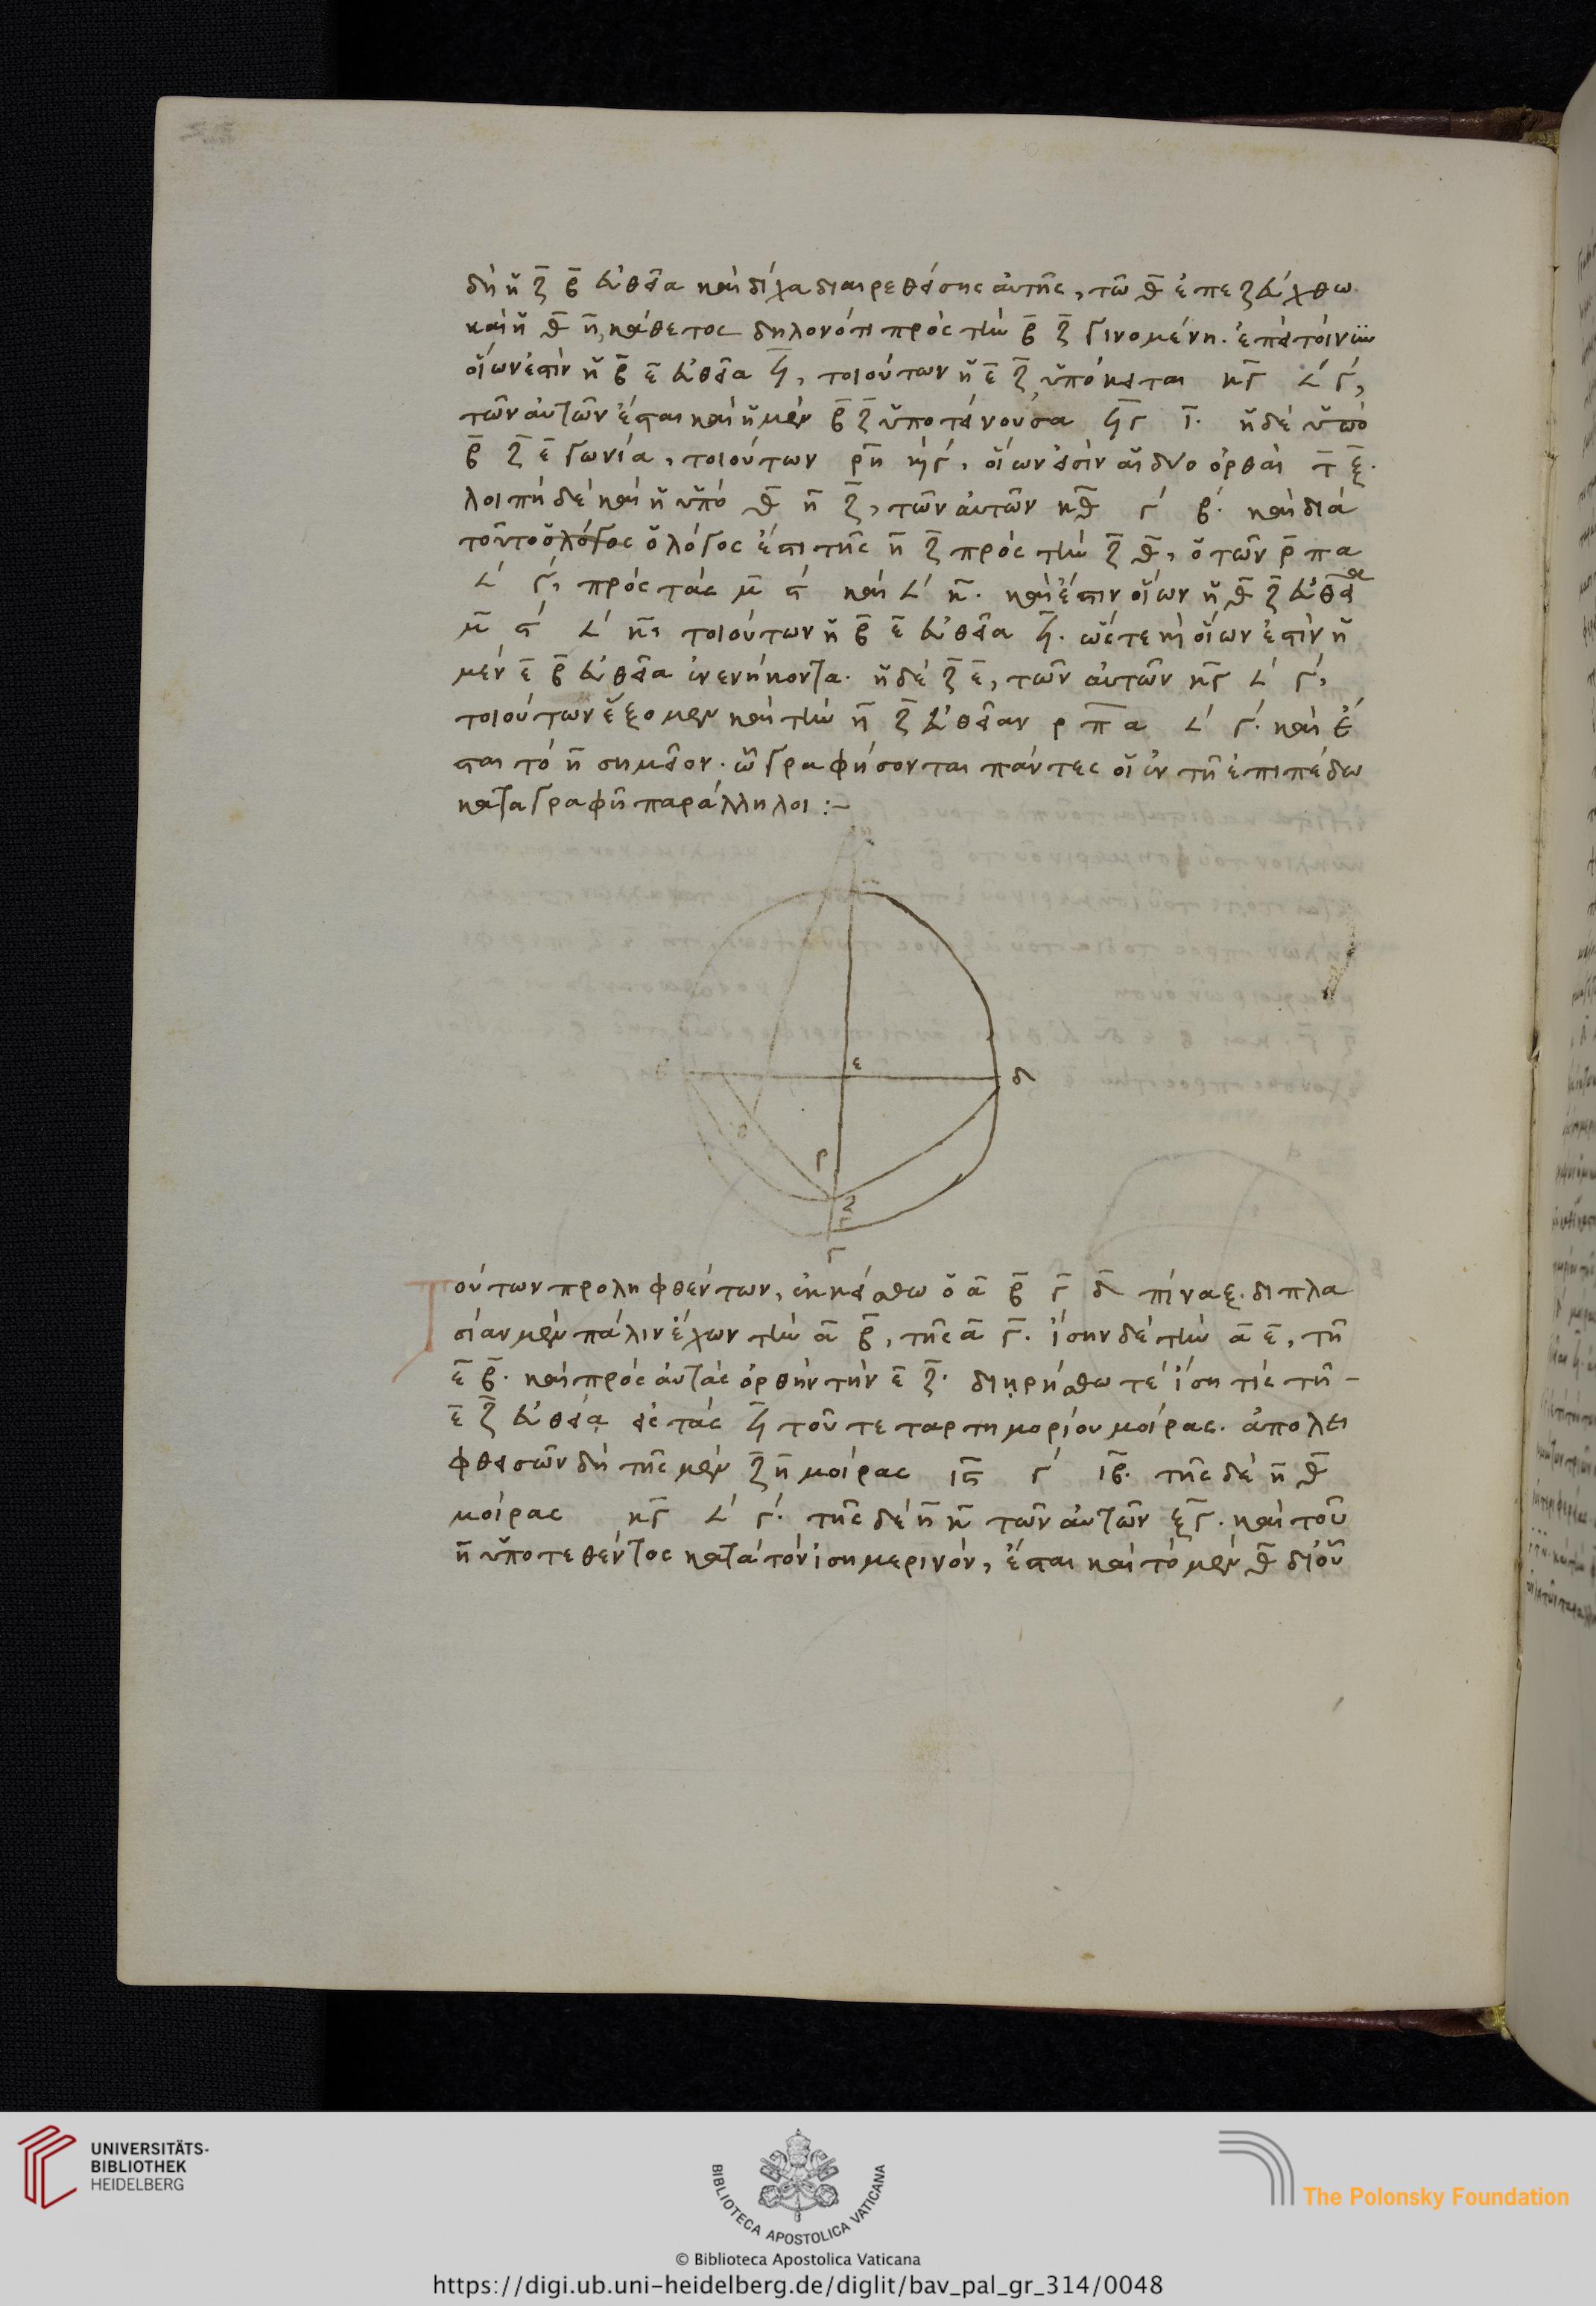 δὴ ἡ ζ̄ β̄ εὐθεῖα καὶ δίχα διαιρεθείσης αὐτῆς, τῶ θ̄ ἐπεζεύχθω
καὶ ἡ θ̄ η̄, κάθετος δηλονότι πρὸς τὴν β̄ ζ̄ γινομένη. ἐπεὶ τοίνυν
οἵων ἐστὶν ἡ β̄ ε̄ εὐθεῖα ϟ̄, τοιούτων ἡ ε̄ ζ̄ ὑπόκειται κ̄γ̄ 𐅵 γ´,
τῶν αὐτῶν ἔσται καὶ ἡ μὲν β̄ ζ̄ ὑποτείνουσα ϟ̄γ ῑ. ἡ δὲ ὑπὸ
β̄ ζ̄ ε̄ γωνία, τοιούτων ρ̄ν̄ κ´γ´, οἵων εἰσὶν αἱ δύο ὀρθαὶ τ̄ ξ̄.
λοιπὴ δὲ καὶ ἡ ὑπὸ θ̄ η̄ ζ̄, τῶν αὐτῶν κ̄θ̄ γ´ β´. καὶ διὰ
τοῦτο ὁ λόγος ὁ λόγος ἐστὶ τῆς η̄ ζ̄ πρὸς τὴν ζ̄ θ̄, ὁ τῶν ρ̄πα
𐅵 γ´, πρὸς τὰς μ̄ ϛ´ καὶ 𐅵 κ̄. καὶ ἔστιν οἵων ἡ θ̄ ζ̄ εὐθεῖα
μ̄ ϛ´ 𐅵 κ̄, τοιούτων ἡ β̄ ε̄ εὐθεῖα ϟ̄. ὥστε καὶ οἵων ἐστὶν ἡ
μὲν ε̄ β̄ εὐθεῖα ἐνενήκοντα. ἡ δὲ ζ̄ ε̄, τῶν αὐτῶν κ̄γ̄ 𐅵 γ´,
τοιούτων ἕξομεν καὶ τὴν η̄ ζ̄ εὐθεῖαν ρ π̄ α 𐅵 γ´. καὶ ἔ
σται τὸ η̄ σημεῖον. ὧ γραφήσονται πάντες οἱ ἐν τῆ ἐπιπέδω
καταγραφῆ παράλληλοι :–
ε
δ
ρ
ζ
γ
Τούτων προληφθέντων, ἐκκείσθω ὁ ᾱ β̄ γ̄ δ̄ πίναξ. διπλα
σίαν μὲν πάλιν ἔχων τὴν ᾱ β̄, τῆς ᾱ γ̄. ἴσην δὲ τὴν ᾱ ε̄, τῆ
ε̄ β̄. καὶ πρὸς αὐτὰς ὀρθὴν τὴν ε̄ ζ̄. διηρήσθω τέ ἴση τίς τῆ –
ε̄ ζ̄ εὐθεία εἰς τὰς ϟ̄ τοῦ τεταρτημορίου μοίρας. ἀπολει
φθεισῶν δὴ τῆς μὲν ζ̄ η̄ μοίρας ῑϛ̄ γ´ ιβ̄. τῆς δὲ η̄ θ̄
μοίρας κ̄γ̄ 𐅵 γ´. τῆς δὲ η̄ κ̄ τῶν αὐτῶν ξ̄γ̄. καὶ τοῦ
η̄ ὑποτεθέντος κατὰ τὸν ἰσημερινόν, ἔσται καὶ τὸ μὲν θ̄ δι' οὗ
UNIVERSITÄTS-
BIBLIOTHEK
HEIDELBERG
BIBLIOTECA APOSTOLICA VATICANA
The Polonsky Foundation
© Biblioteca Apostolica Vaticana
https://digi.ub.uni-heidelberg.de/diglit/bav_pal_gr_314/0048